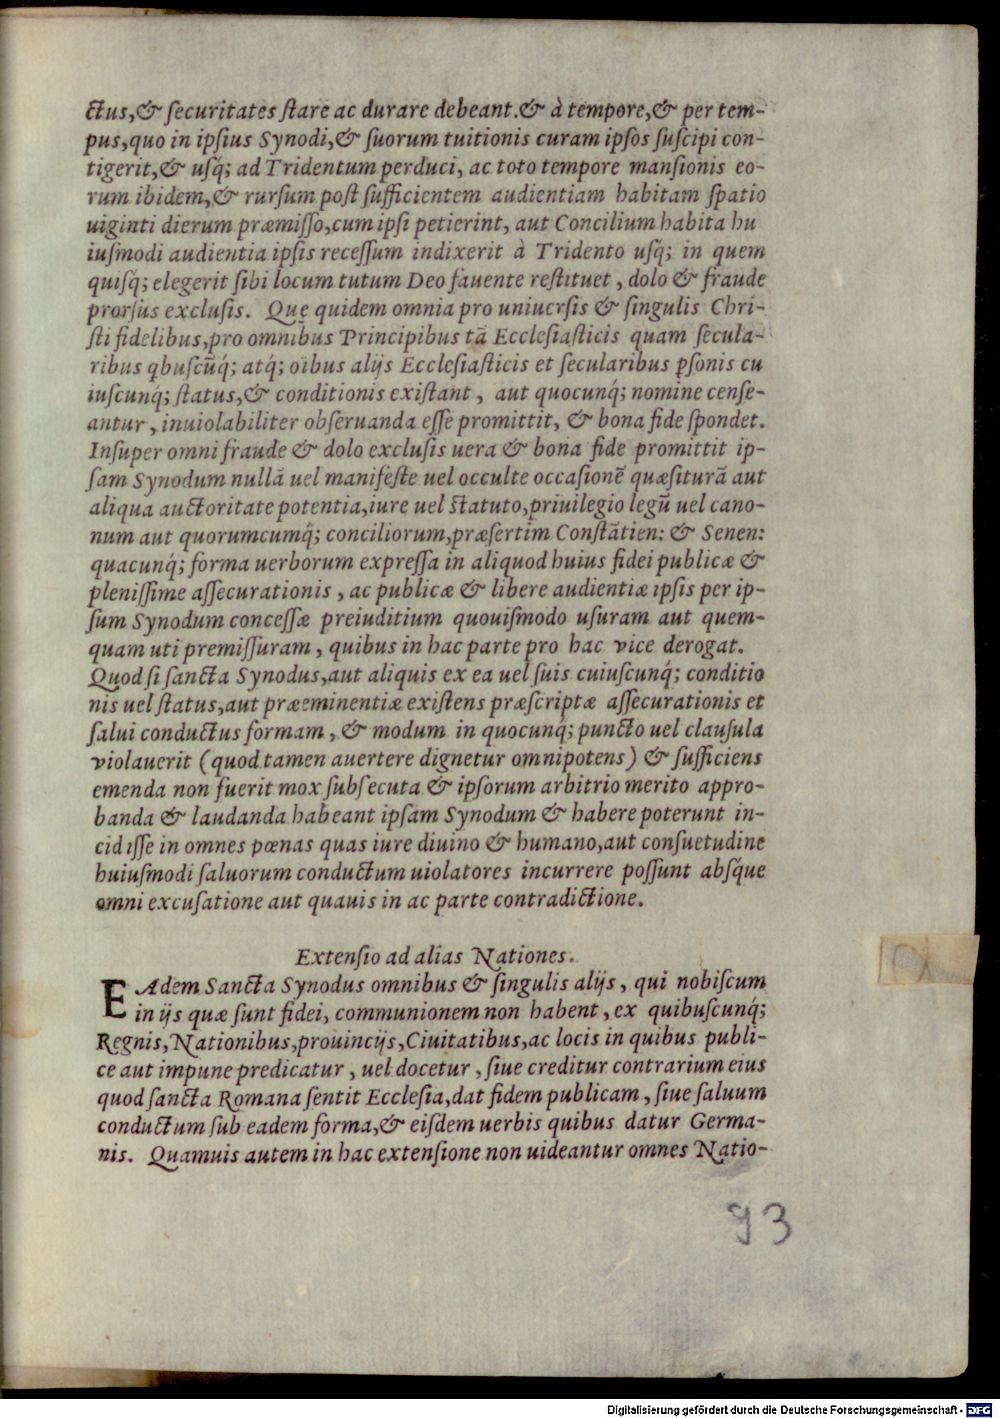 ctus,& ſecuritates ſtare ac durare debeant.& à tempore,& per tem-
pus,quo in ipſius Synodi,& ſuorum tuitionis curam ipſos ſuſcipi con-
tigerit,& uſq́; ad Tridentum perduci, ac toto tempore manſionis eo-
rum ibidem,& rurſum poſt ſufficientem audientiam habitam ſpatio
uiginti dierum præmiſſo,cum ipſi petierint, aut Concilium habita hu
iuſmodi audientia ipſis receſſum indixerit à Tridento uſq́; in quem
quiſq́; elegerit ſibi locum tutum Deo fauente reſtituet, dolo & fraude
prorſus excluſis. Quę quidem omnia pro uniuerſis & ſingulis Chri-
ſti fidelibus,pro omnibus Principibus tā Eccleſiaſticis quam ſecula-
ribus qbuſcūq́; atq́; oībus alijs Eccleſiaſticis et ſecularibus pſonis cu
iuſcunq́; ſtatus,& conditionis exiſtant, aut quocunq́; nomine cenſe-
antur, inuiolabiliter obſeruanda eſſe promittit, & bona fide ſpondet.
Inſuper omni fraude & dolo excluſis uera & bona fide promittit ip-
ſam Synodum nullā uel manifeſte uel occulte occaſionē quæſiturā aut
aliqua auctoritate potentia,iure uel ſtatuto,priuilegio legū uel cano-
num aut quorumcumq́; conciliorum,præſertim Conſtātien: & Senen:
quacunq́; forma uerborum expreſſa in aliquod huius fidei publicæ &
pleniſſime aſſecurationis, ac publicæ & libere audientiæ ipſis per ip-
ſum Synodum conceſſæ preiuditium quouiſmodo uſuram aut quem-
quam uti premiſſuram, quibus in hac parte pro hac vice derogat.
Quod ſi ſancta Synodus,aut aliquis ex ea uel ſuis cuiuſcunq́; conditio
nis uel ſtatus,aut præeminentiæ exiſtens præſcriptæ aſſecurationis et
ſalui conductus formam, & modum in quocunq́; puncto uel clauſula
violauerit (quod tamen auertere dignetur omnipotens) & ſufficiens
emenda non fuerit mox ſubſecuta & ipſorum arbitrio merito appro-
banda & laudanda habeant ipſam Synodum & habere poterunt in-
cidiſſe in omnes pœnas quas iure diuino & humano,aut conſuetudine
huiuſmodi ſaluorum conductum uiolatores incurrere poſſunt abſq́ue
omni excuſatione aut quauis in ac parte contradictione.
Extenſio ad alias Nationes.
EAdem Sancta Synodus omnibus & ſingulis alijs, qui nobiſcum
in ijs quæ ſunt fidei, communionem non habent, ex quibuſcunq́;
Regnis,Nationibus,prouincijs,Ciuitatibus,ac locis in quibus publi-
ce aut impune predicatur, uel docetur, ſiue creditur contrarium eius
quod ſancta Romana ſentit Eccleſia,dat fidem publicam, ſiue ſaluum
conductum ſub eadem forma,& eiſdem uerbis quibus datur Germa-
nis. Quamuis autem in hac extenſione non uideantur omnes Natio-
93
Digitalisierung gefördert durch die Deutsche Forschungsgemeinschaft - DFG